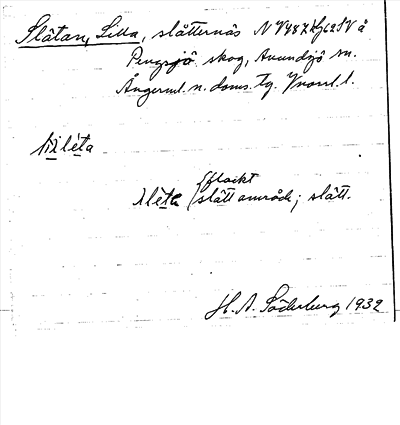 Slåtan, Lilla, slåtternäs N V
Pengsjö skog, Anundsjö sn.
Ångerml. n. doms. tg. Vnorrl. l.
lilleta
sleta (flackt
slätt område; slätt.
H. A. Söderberg 1932